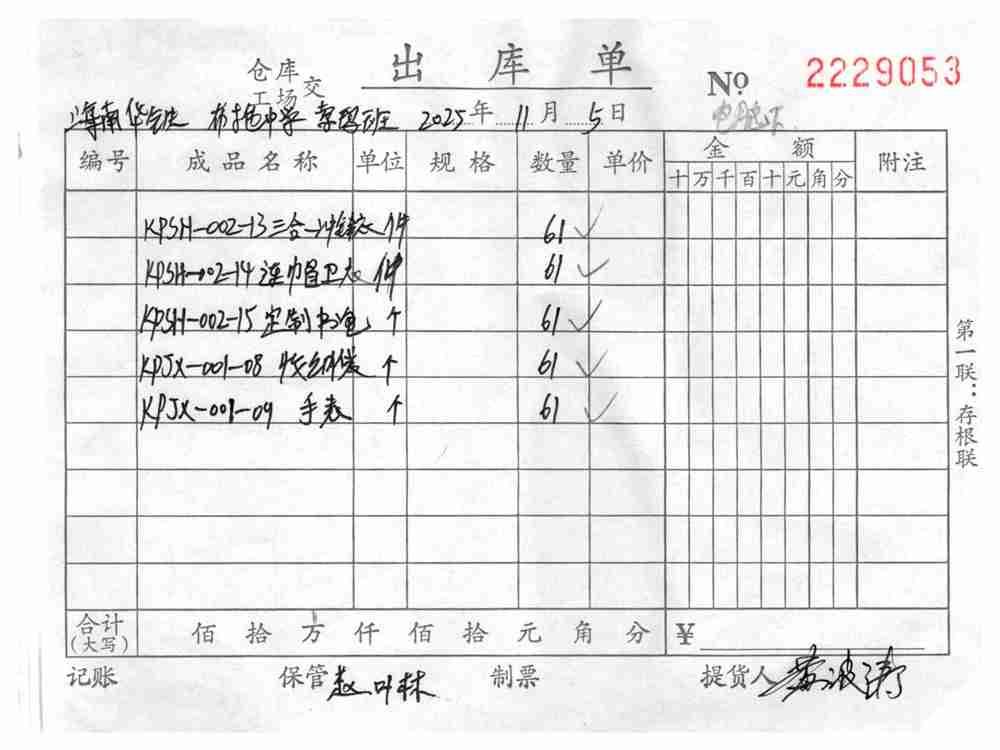 出库单
仓库
工场交
No 2229053
海南华 中学 班 2025年11月5日
编号 成品名称 单位 规格 数量 单价 金额 附注
十万千百十元角分
KPSH-002-13 三合一冲锋衣 件 61 ✓
KPSH-002-14 连帽卫衣 件 61 ✓
KPSH-002-15 定制书包 个 61 ✓
KPJX-001-08 收纳袋 个 61 ✓
KPJX-001-09 手表 个 61 ✓
第一联：存根联
合计(大写) 佰拾万仟佰拾元角分 ¥
记账 保管 赵叶林 制票 提货人 黄波涛